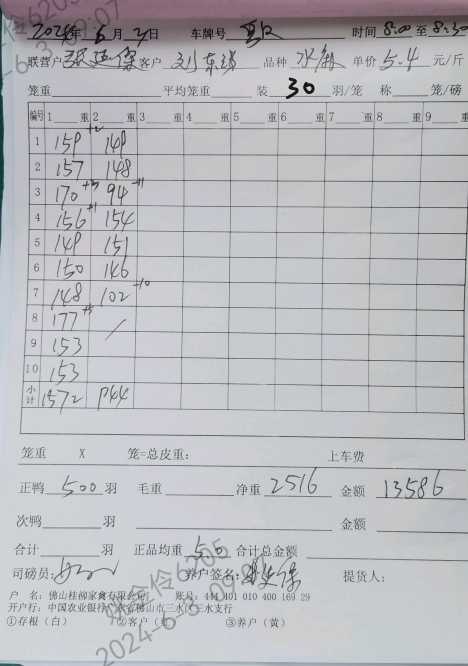 2024年 6月 3日 车牌号 时间 8:00 至 8:30
联营户 客户 刘 品种 水鸭 单价 5.4 元/斤
笼重 平均笼重 装 30 羽/笼 称 笼/磅
编号 1 重 2 重 3 重 4 重 5 重 6 重 7 重 8 重 9 重
1 159 +2 149
2 157 148
3 170 +3 94 -11
4 156 +1 154
5 149 151
6 150 146
7 148 102 -10
8 177 +5 /
9 153
10 153
小计 1572 944
笼重 X 笼=总皮重: 上车费
正鸭 500 羽 毛重 净重 2516 金额 13586
次鸭 羽 金额
合计 羽 正品均重 5.0 合计总金额
司磅员: 养户签名: 提货人:
户 名: 佛山桂柳家禽有限公司 账号: 444 401 010 400 169 29
开户行: 中国农业银行 佛山市三水 三水支行
①存根（白） ②客户 ③养户（黄）
6205
2024-6-3 09